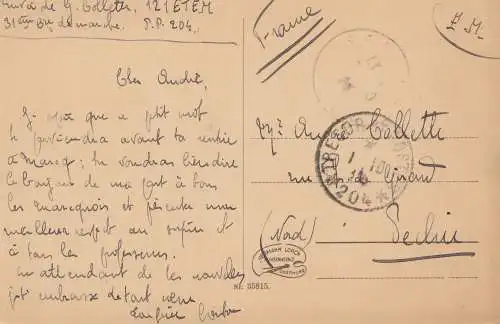 de G. Collette, 121 ETEM
31ème Bon de marche. S.P. 204.
France
F.M.
Cher André,
J'espère que ce petit mot
te parviendra avant ta rentrée
à Marcq ; tu voudras bien dire
le bonjour de ma part à tous
les marcquois et présenter mon
meilleur respect au supérieur et
à tous les professeurs.
En attendant de tes nouvelles
je t'embrasse de tout cœur
Mr André Collette
rue Girard
Seclin
(Nord)
TRESOR ET POSTES
204
HERMANN LORCH
DORTMUND
Nr. 55815.